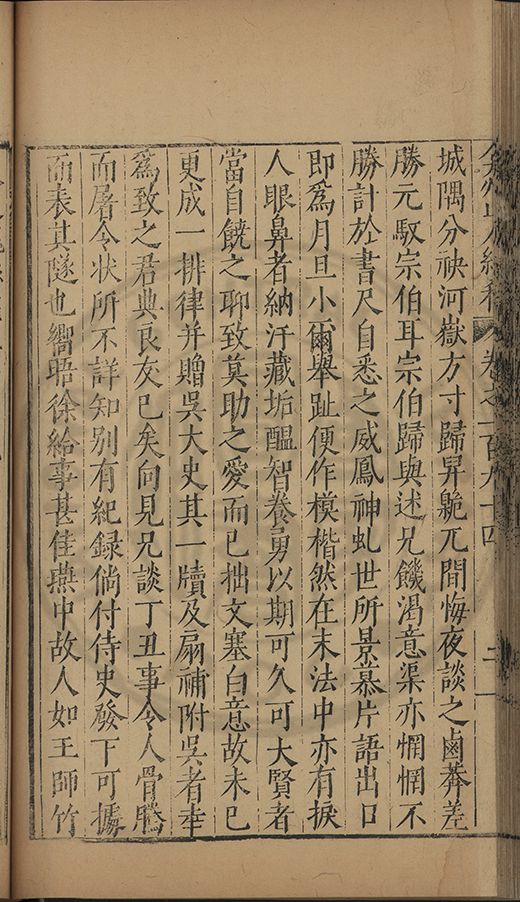 弇州山人續稿 卷之一百九十四 二
城隅分袂河嶽方寸歸昇臲兀間悔夜談之鹵莽差
勝元馭宗伯耳宗伯歸與述兄饑渴意渠亦惘惘不
勝計於書尺自悉之威鳳神虬世所景慕片語出口
即爲月旦小爾舉趾便作模楷然在末法中亦有捩
人眼鼻者納汙藏垢醞智養勇以期可久可大賢者
當自饒之聊致莫助之愛而已拙文塞白意故未已
更成一排律并贈吳大史其一牘及扇補附吳者幸
爲致之君典良友已矣向見兄談丁丑事令人骨騰
而屠令狀所不詳知別有紀録倘付侍史發下可據
而表其隧也嚮晤徐給事甚佳燕中故人如王師竹